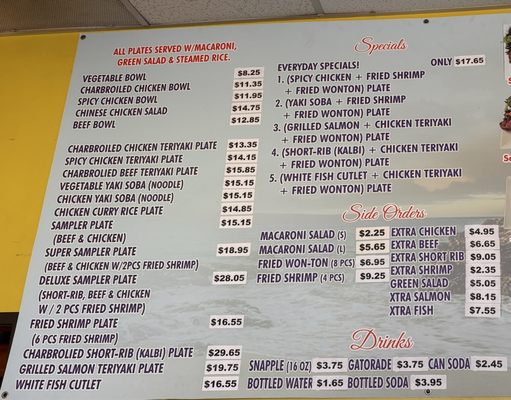 ALL PLATES SERVED W/MACARONI,
GREEN SALAD & STEAMED RICE.
VEGETABLE BOWL $8.25
CHARBROILED CHICKEN BOWL $11.35
SPICY CHICKEN BOWL $11.95
CHINESE CHICKEN SALAD $14.75
BEEF BOWL $12.85
CHARBROILED CHICKEN TERIYAKI PLATE $13.35
SPICY CHICKEN TERIYAKI PLATE $14.15
CHARBROILED BEEF TERIYAKI PLATE $15.85
VEGETABLE YAKI SOBA (NOODLE) $15.15
CHICKEN YAKI SOBA (NOODLE) $15.15
CHICKEN CURRY RICE PLATE $14.85
SAMPLER PLATE $15.15
(BEEF & CHICKEN)
SUPER SAMPLER PLATE $18.95
(BEEF & CHICKEN W/2PCS FRIED SHRIMP)
DELUXE SAMPLER PLATE $28.05
(SHORT-RIB, BEEF & CHICKEN
W / 2 PCS FRIED SHRIMP)
FRIED SHRIMP PLATE $16.55
(6 PCS FRIED SHRIMP)
CHARBROLIED SHORT-RIB (KALBI) PLATE $29.65
GRILLED SALMON TERIYAKI PLATE $19.75
WHITE FISH CUTLET $16.55
Specials
EVERYDAY SPECIALS! ONLY $17.65
1. (SPICY CHICKEN + FRIED SHRIMP
+ FRIED WONTON) PLATE
2. (YAKI SOBA + FRIED SHRIMP
+ FRIED WONTON) PLATE
3. (GRILLED SALMON + CHICKEN TERIYAKI
+ FRIED WONTON) PLATE
4. (SHORT-RIB (KALBI) + CHICKEN TERIYAKI
+ FRIED WONTON) PLATE
5. (WHITE FISH CUTLET + CHICKEN TERIYAKI
+ FRIED WONTON) PLATE
Side Orders
MACARONI SALAD (S) $2.25
MACARONI SALAD (L) $5.65
FRIED WON-TON (8 PCS) $6.95
FRIED SHRIMP (4 PCS) $9.25
EXTRA CHICKEN $4.95
EXTRA BEEF $6.65
EXTRA SHORT RIB $9.05
EXTRA SHRIMP $2.35
GREEN SALAD $5.05
XTRA SALMON $8.15
XTRA FISH $7.55
Drinks
SNAPPLE (16 OZ) $3.75 GATORADE $3.75 CAN SODA $2.45
BOTTLED WATER $1.65 BOTTLED SODA $3.95